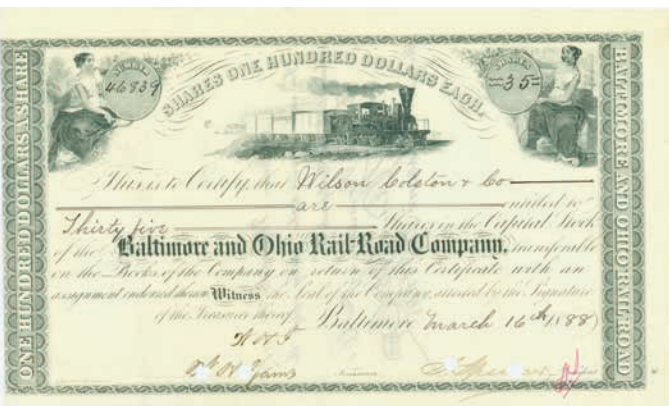 ONE HUNDRED DOLLARS A SHARE
NUMBER
46839
SHARES ONE HUNDRED DOLLARS EACH.
SHARES
35
BALTIMORE AND OHIO RAIL-ROAD
This is to Certify, that Wilson Colston & Co
are entitled to
Thirty five Shares in the Capital Stock
of the Baltimore and Ohio Rail-Road Company, transferable
on the Books of the Company on return of this Certificate with an
assignment endorsed thereon Witness the Seal of the Company, attested by the Signature
of the Treasurer thereof. Baltimore March 16th 188
Treasurer